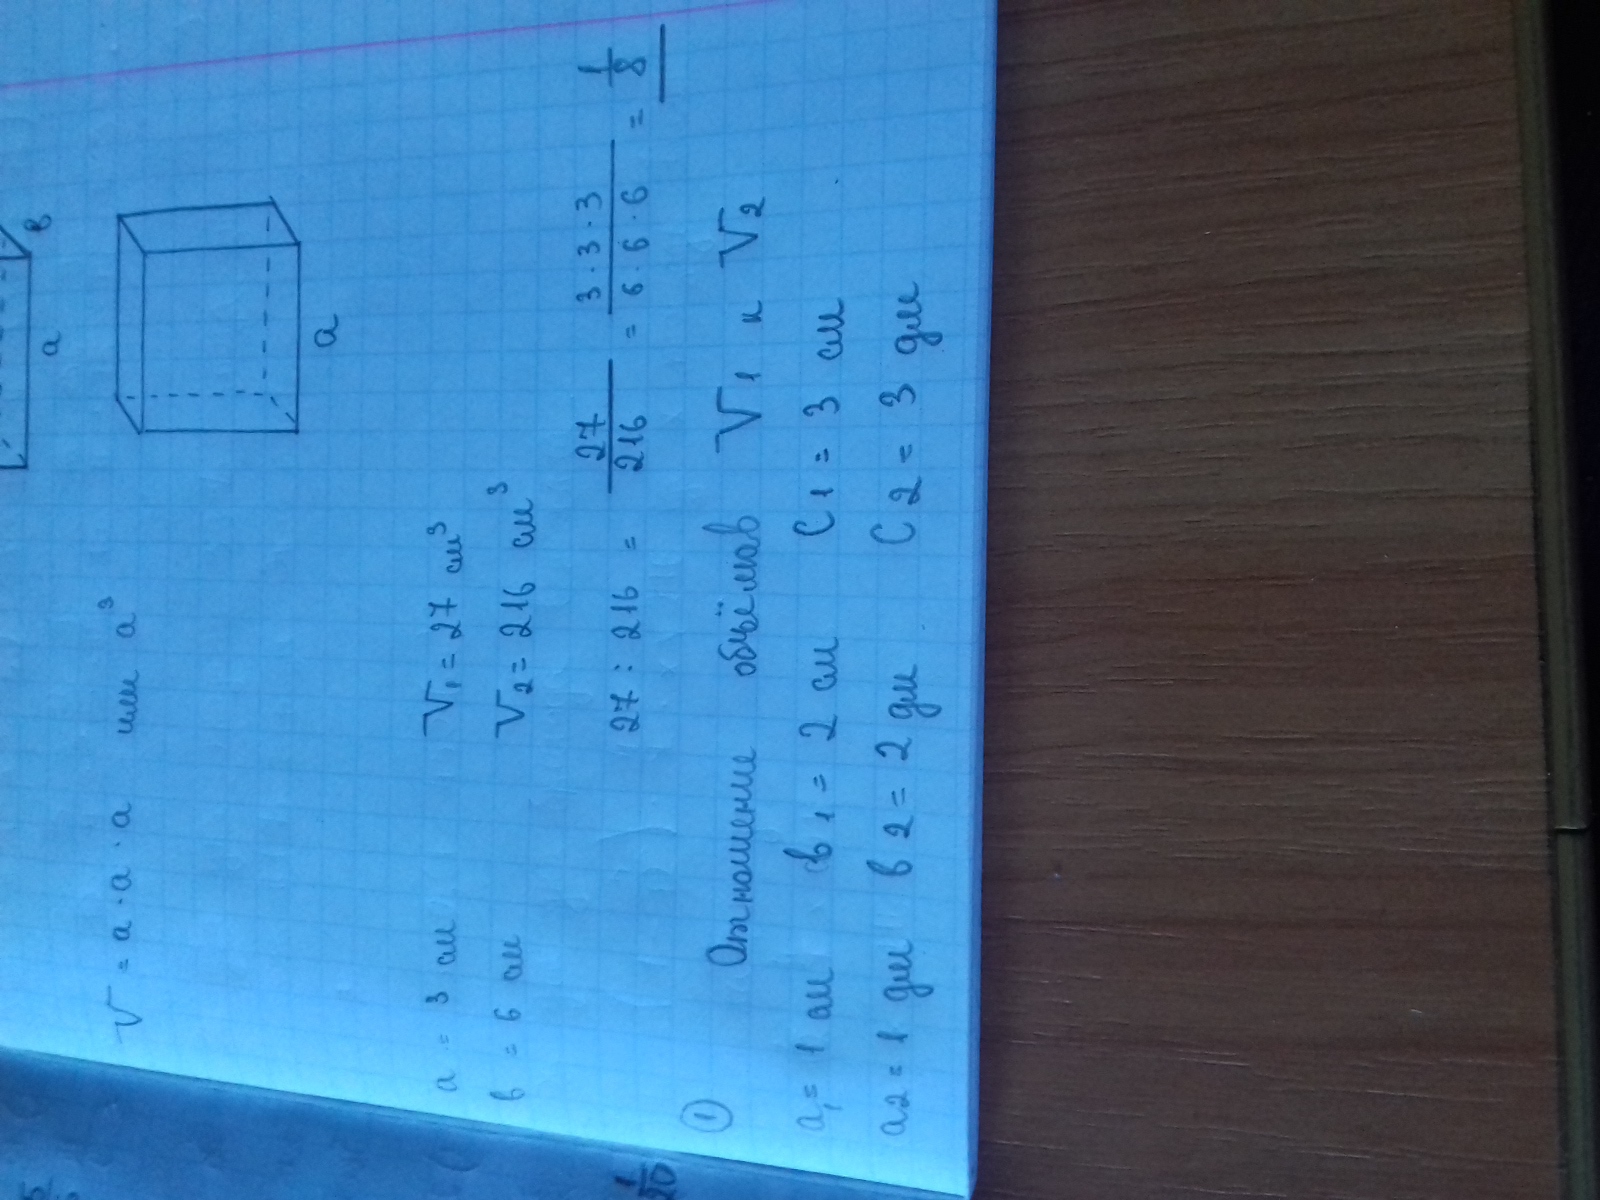 а в
V = а · а · а или а³
а
а = 3 см V₁ = 27 см³
в = 6 см V₂ = 216 см³
27 : 216 = 27/216 = 3 · 3 · 3/6 · 6 · 6 = 1/8
① Отношение объёмов V₁ и V₂
а₁ = 1 см в₁ = 2 см С₁ = 3 см
а₂ = 1 дм в₂ = 2 дм С₂ = 3 дм
1/20